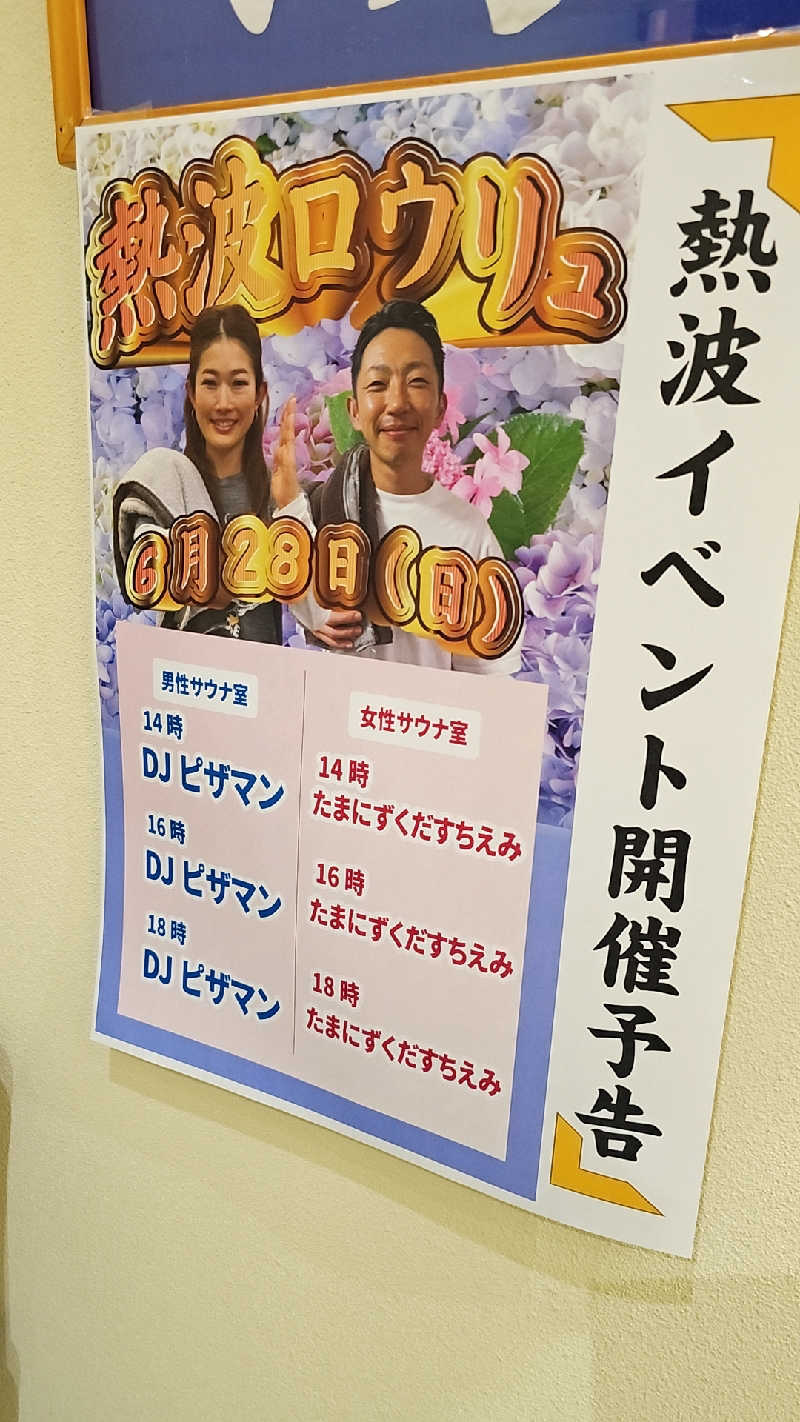 熱波ロウリュ
6月28日(日)
男性サウナ室
14時
DJ ピザマン
16時
DJ ピザマン
18時
DJ ピザマン
女性サウナ室
14時
たまにずくだすちえみ
16時
たまにずくだすちえみ
18時
たまにずくだすちえみ
熱波イベント開催予告